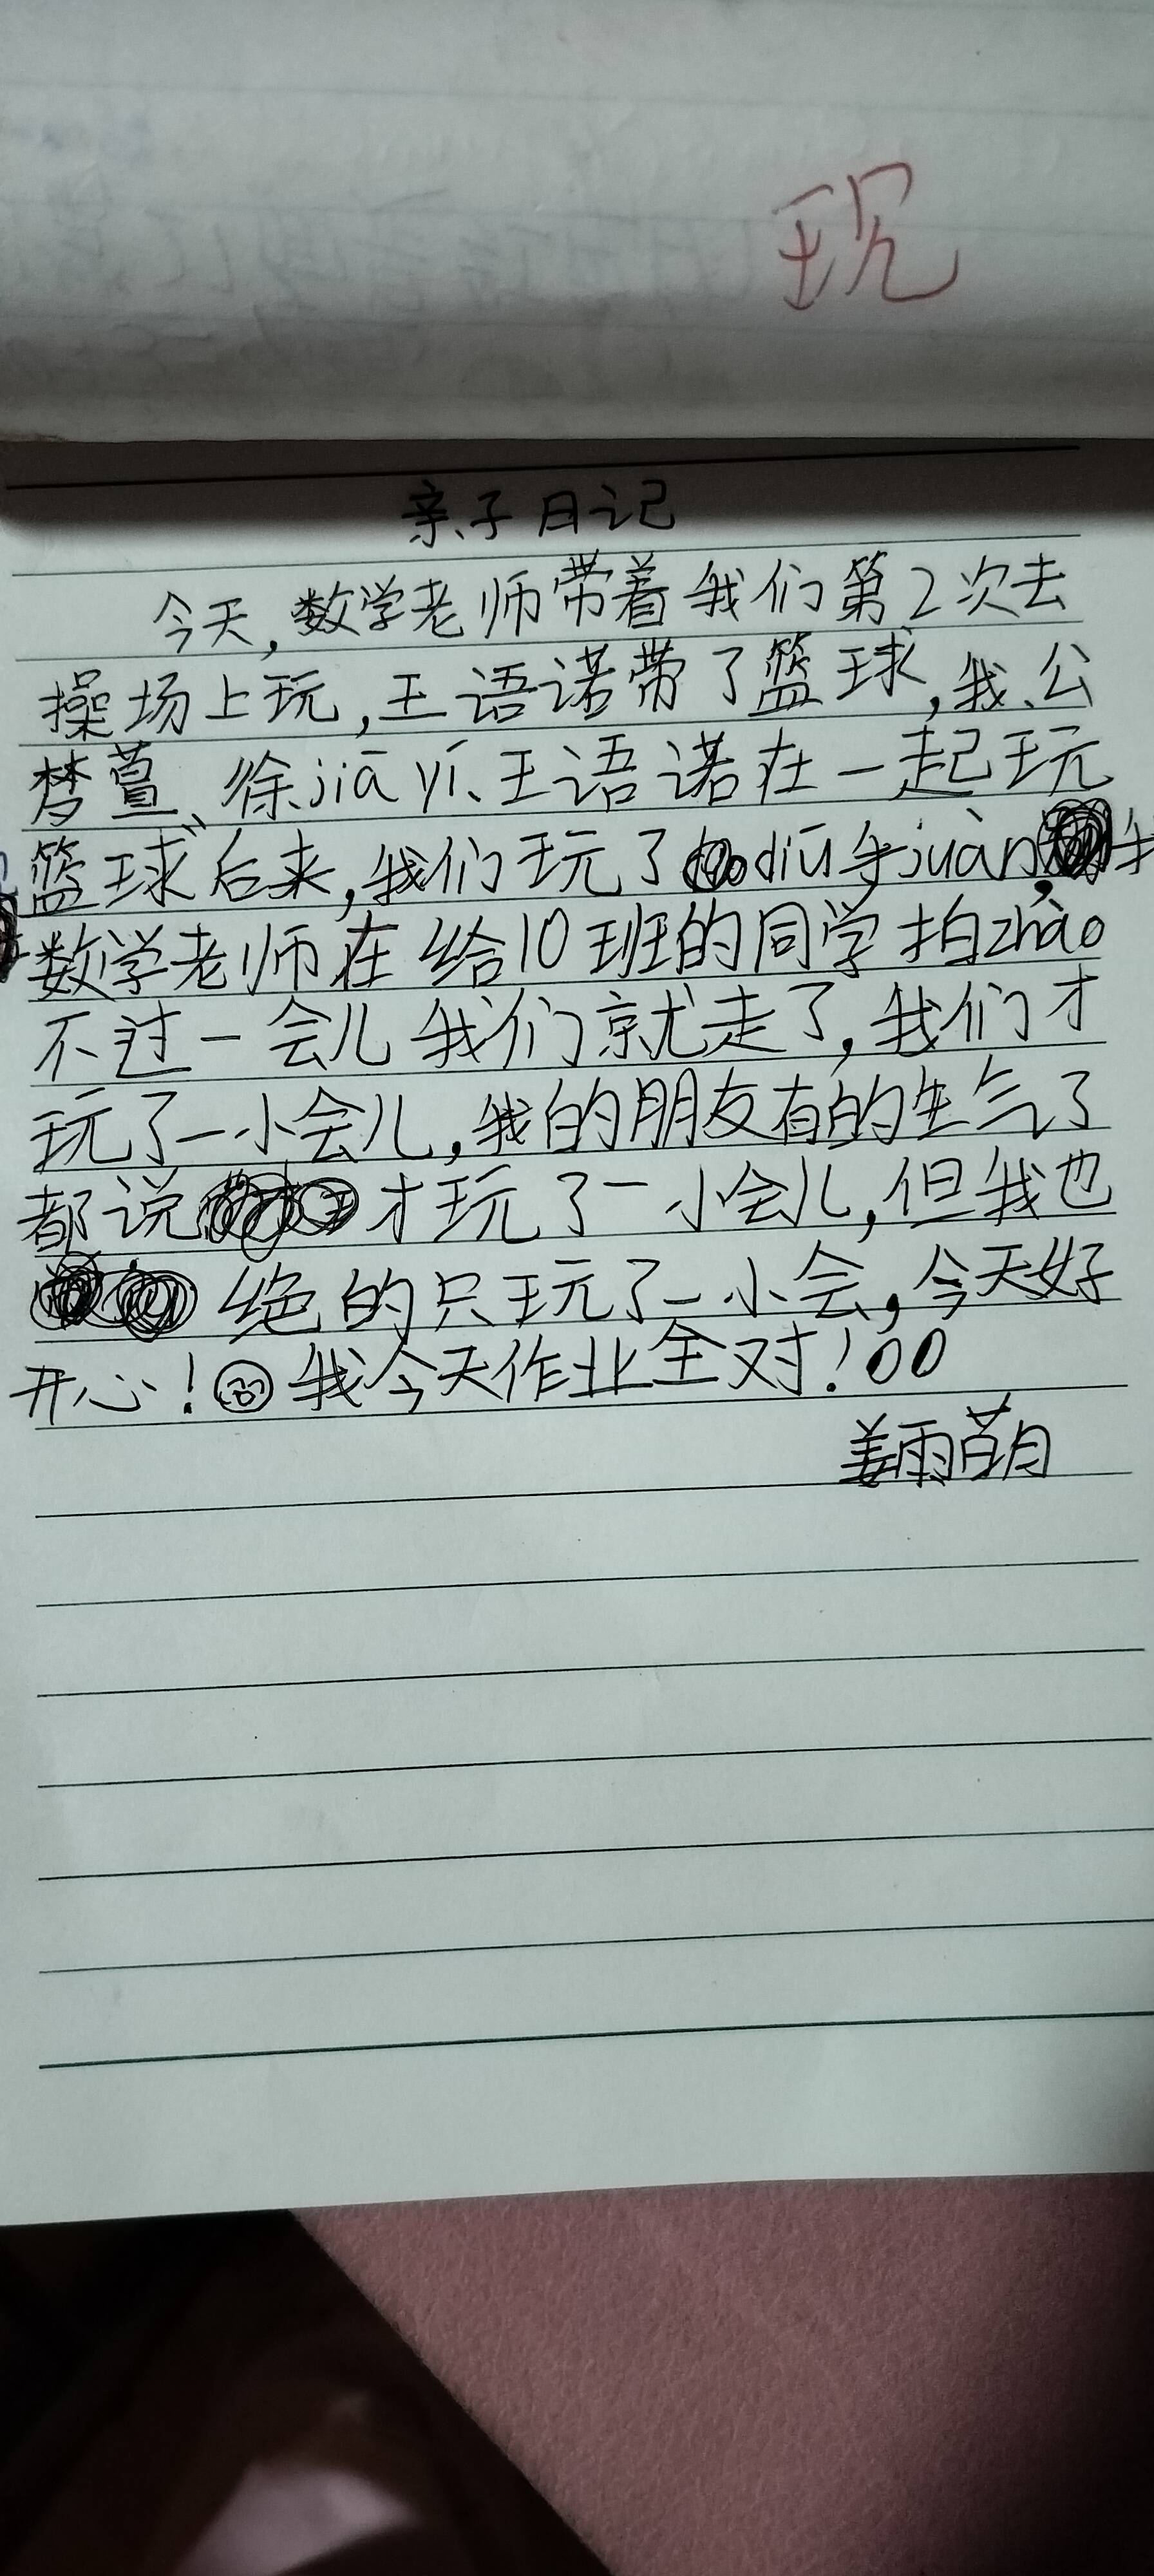 现
亲子日记
今天,数学老师带着我们第2次去
操场上玩,王语诺带了篮球,我、公
梦萱、徐jiā yí、王语诺在一起玩
篮球后来,我们玩了diū手juàn,我
数学老师在给10班的同学拍zhào
不过一会儿我们就走了,我们才
玩了一小会儿,我的朋友有的生气了
都说才玩了一小会儿,但我也
绝的只玩了一小会,今天好
开心!我今天作业全对!00
姜雨萌